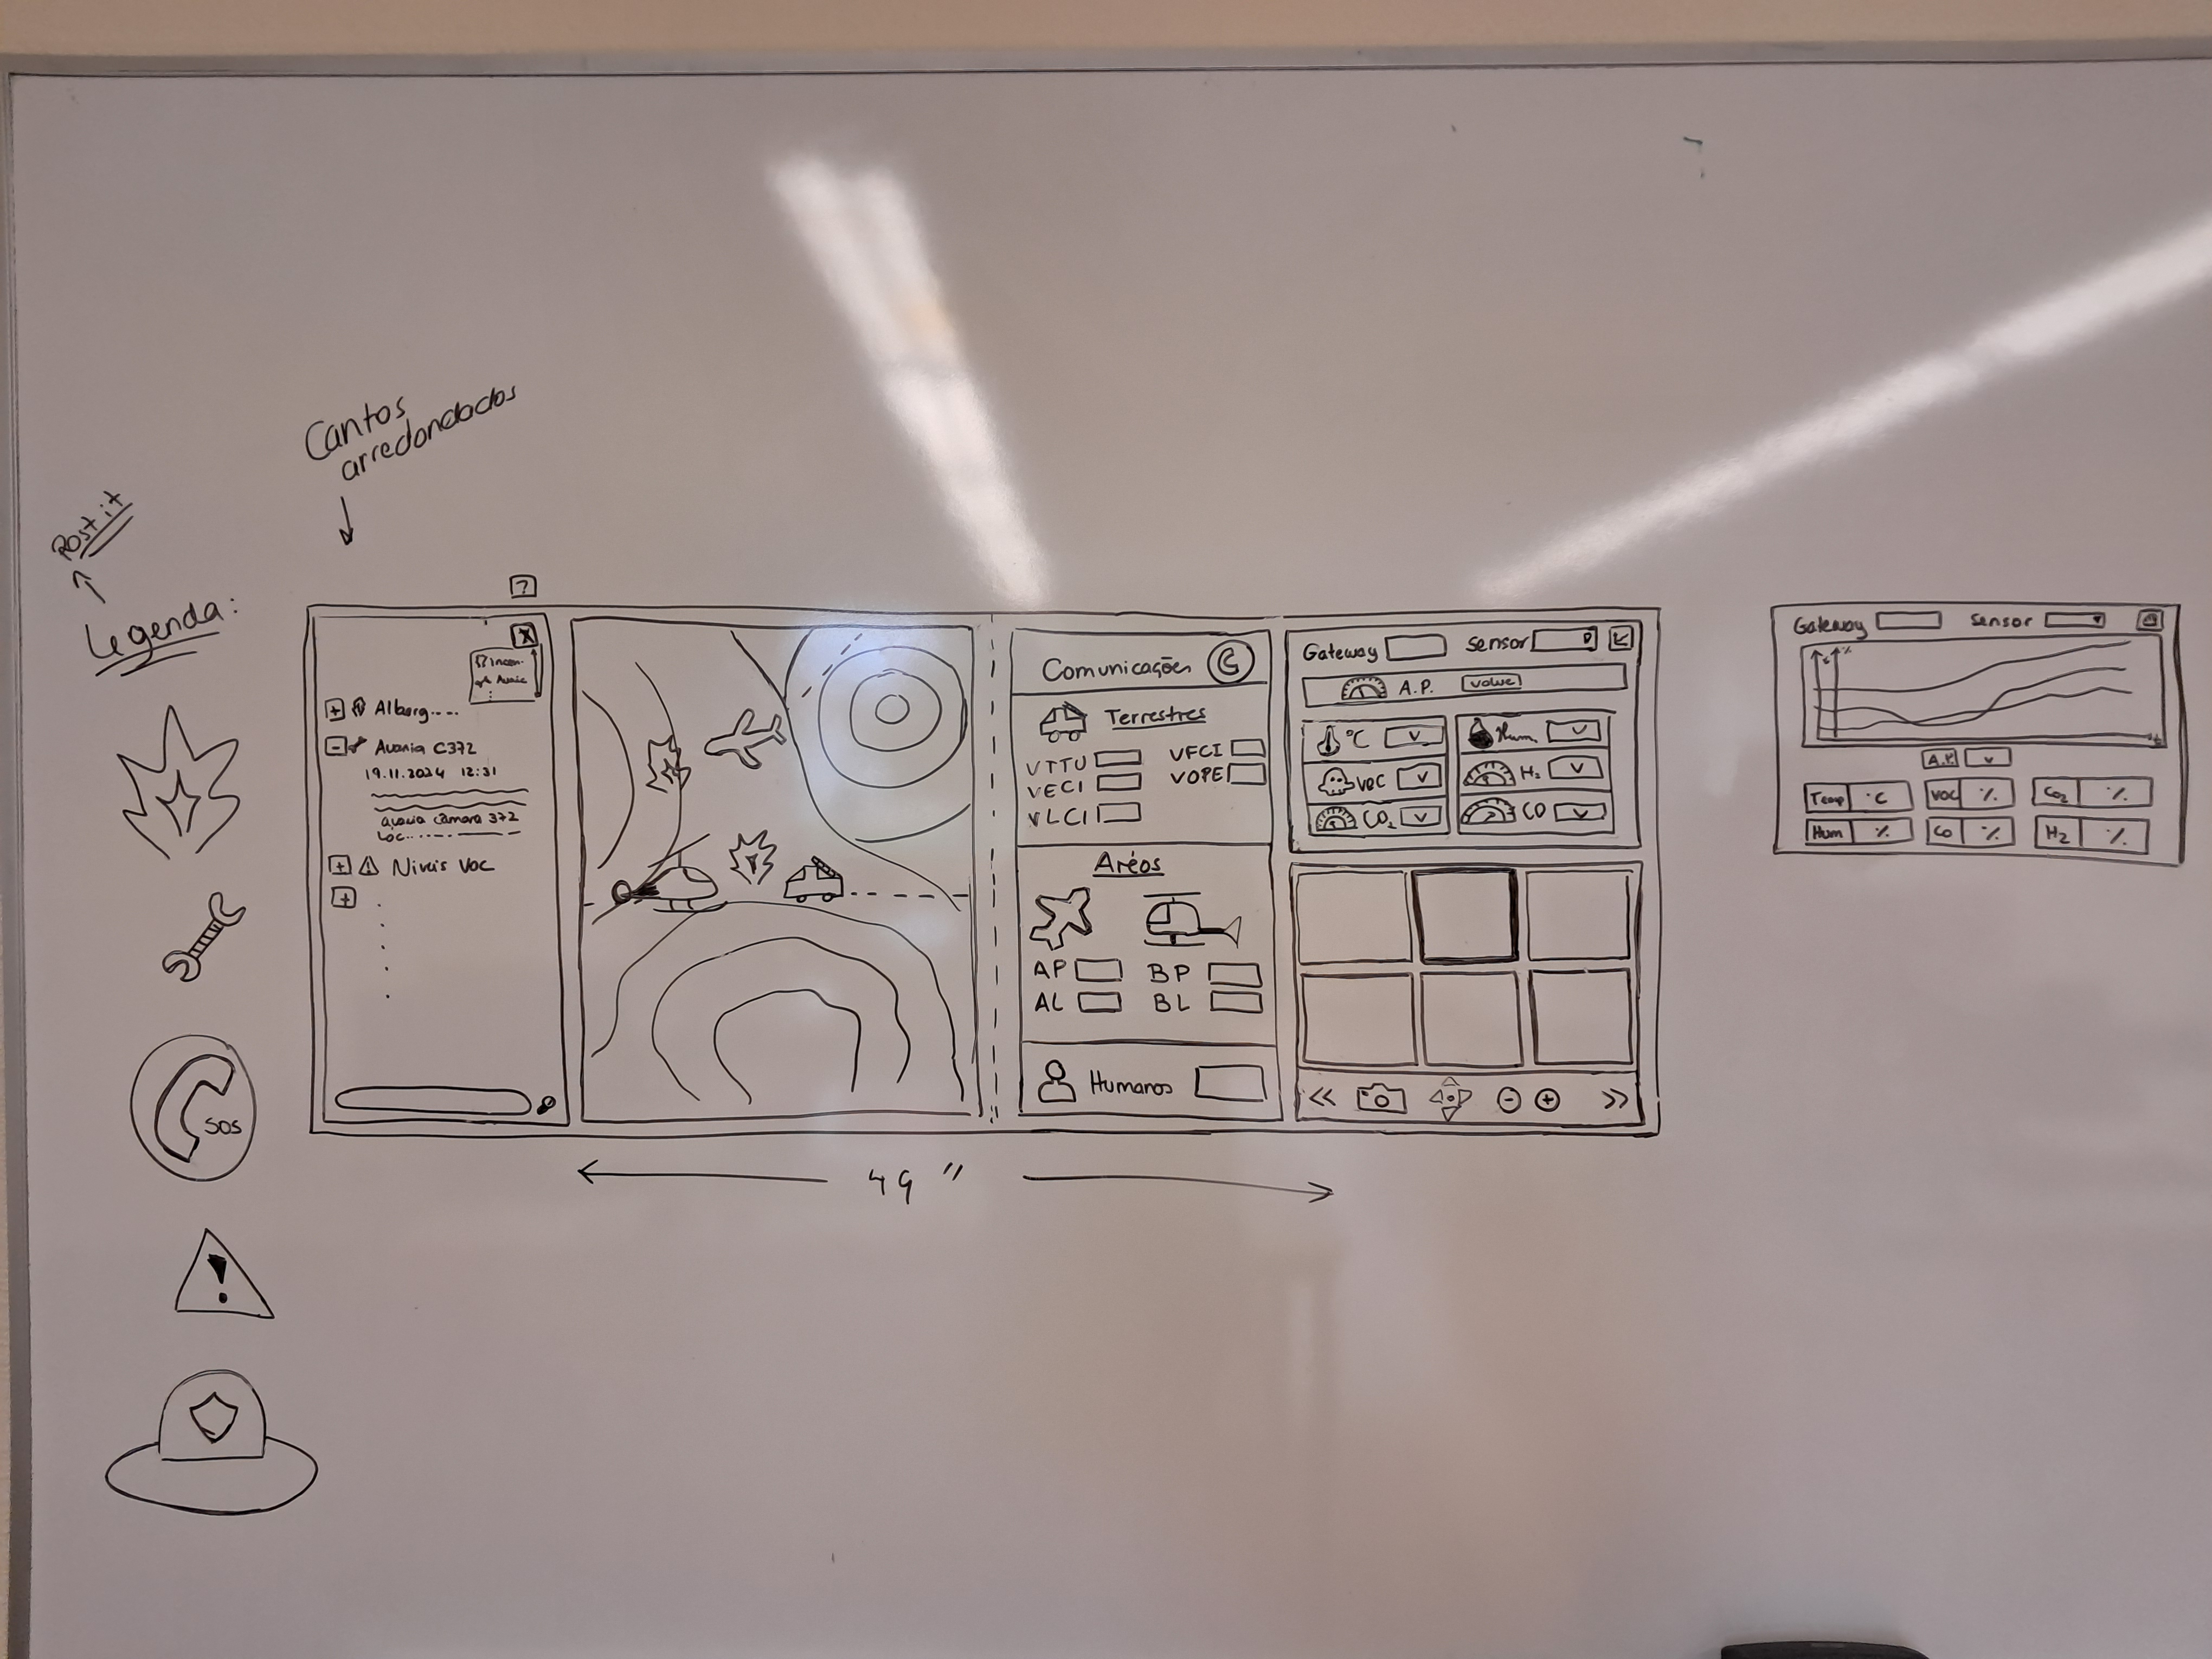 Cantos
arredondados
Post it
Legenda:
SOS
?
X
Incen.
Avaric
+ Alberg....
- Avaria C372
19.11.2024 12:31
avaria câmara 372
Loc.....
+ Niveis VOC
+
Comunicações
Terrestres
VTTU
VFCI
VECI
VOPE
VLCI
Aréos
AP
BP
AL
BL
Humanos
Gateway Sensor
A.P. value
°C V
Hum. V
VOC V
H2 V
CO2 V
CO V
<< - + >>
49 "
Gateway Sensor
%
A.P. V
Temp °C VOC % CO2 %
Hum % CO % H2 %